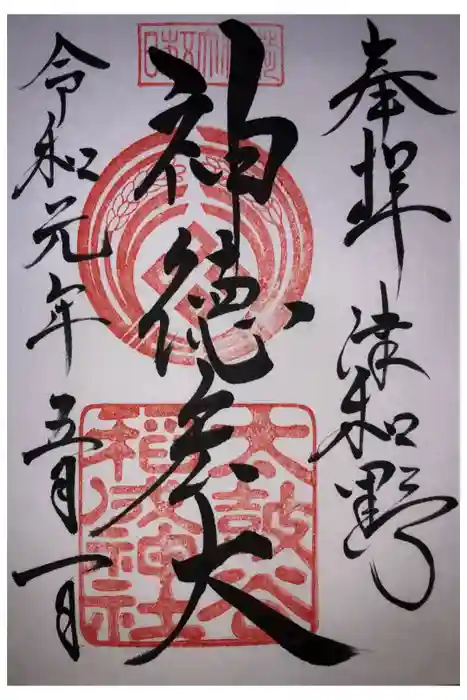 奉拝 津和野
神徳宏大
太鼓谷
稲成神社
令和元年五月一日